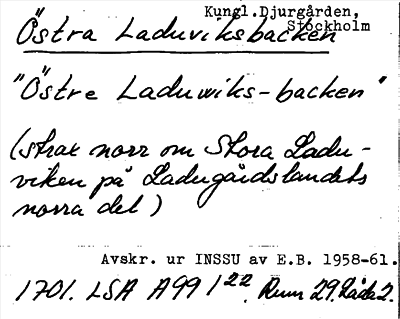 Kungl. Djurgården,
Stockholm
Östra Laduviksbacken
"Östre Laduwiks-backen"
(strax norr om Stora Ladu-
viken på Ladugårdslandets
norra del)
Avskr. ur INSSU av E.B. 1958-61.
1701. LSA A99 1²². Rum 29. Låda 2.